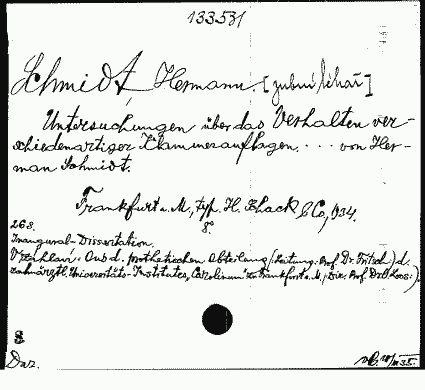 133531
Schmidt, Hermann. [zubní lékař]
Untersuchungen über das Verhalten ver-
schiedenartiger Klammerauflagen. ... von Her-
man Schmidt.
Frankfurt a. M., typ. H. Shack & Co, 934.
8°.
268.
Inaugural-Dissertation.
Aus d. prothetischen Abteilung (Leitung: Prof. Dr. Fritsch) d.
zahnärztl. Universitäts-Institutes "Carolinum" zu Frankfurt a. M., (Dir. Prof. Dr. Loos.)
8
Dar.